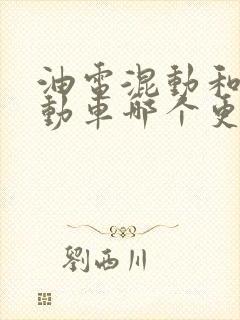 油電混動和
動車哪个更
劉西川